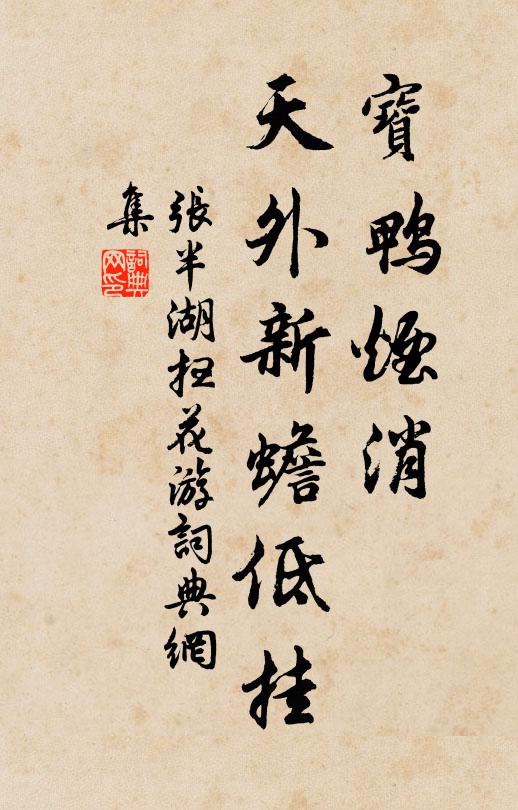 寶鴨煙消
天外新蟾低挂
張半湖掃花游詞典網
集
詞典
网印